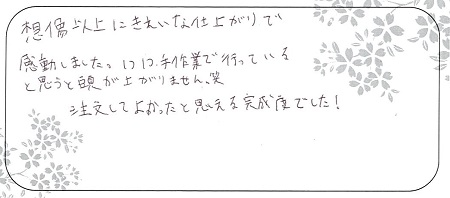 想像以上にきれいな仕上がりで
感動しました。1つ1つ手作業で行っている
と思うと頭が上がりません。笑
注文してよかったと思える完成度でした！